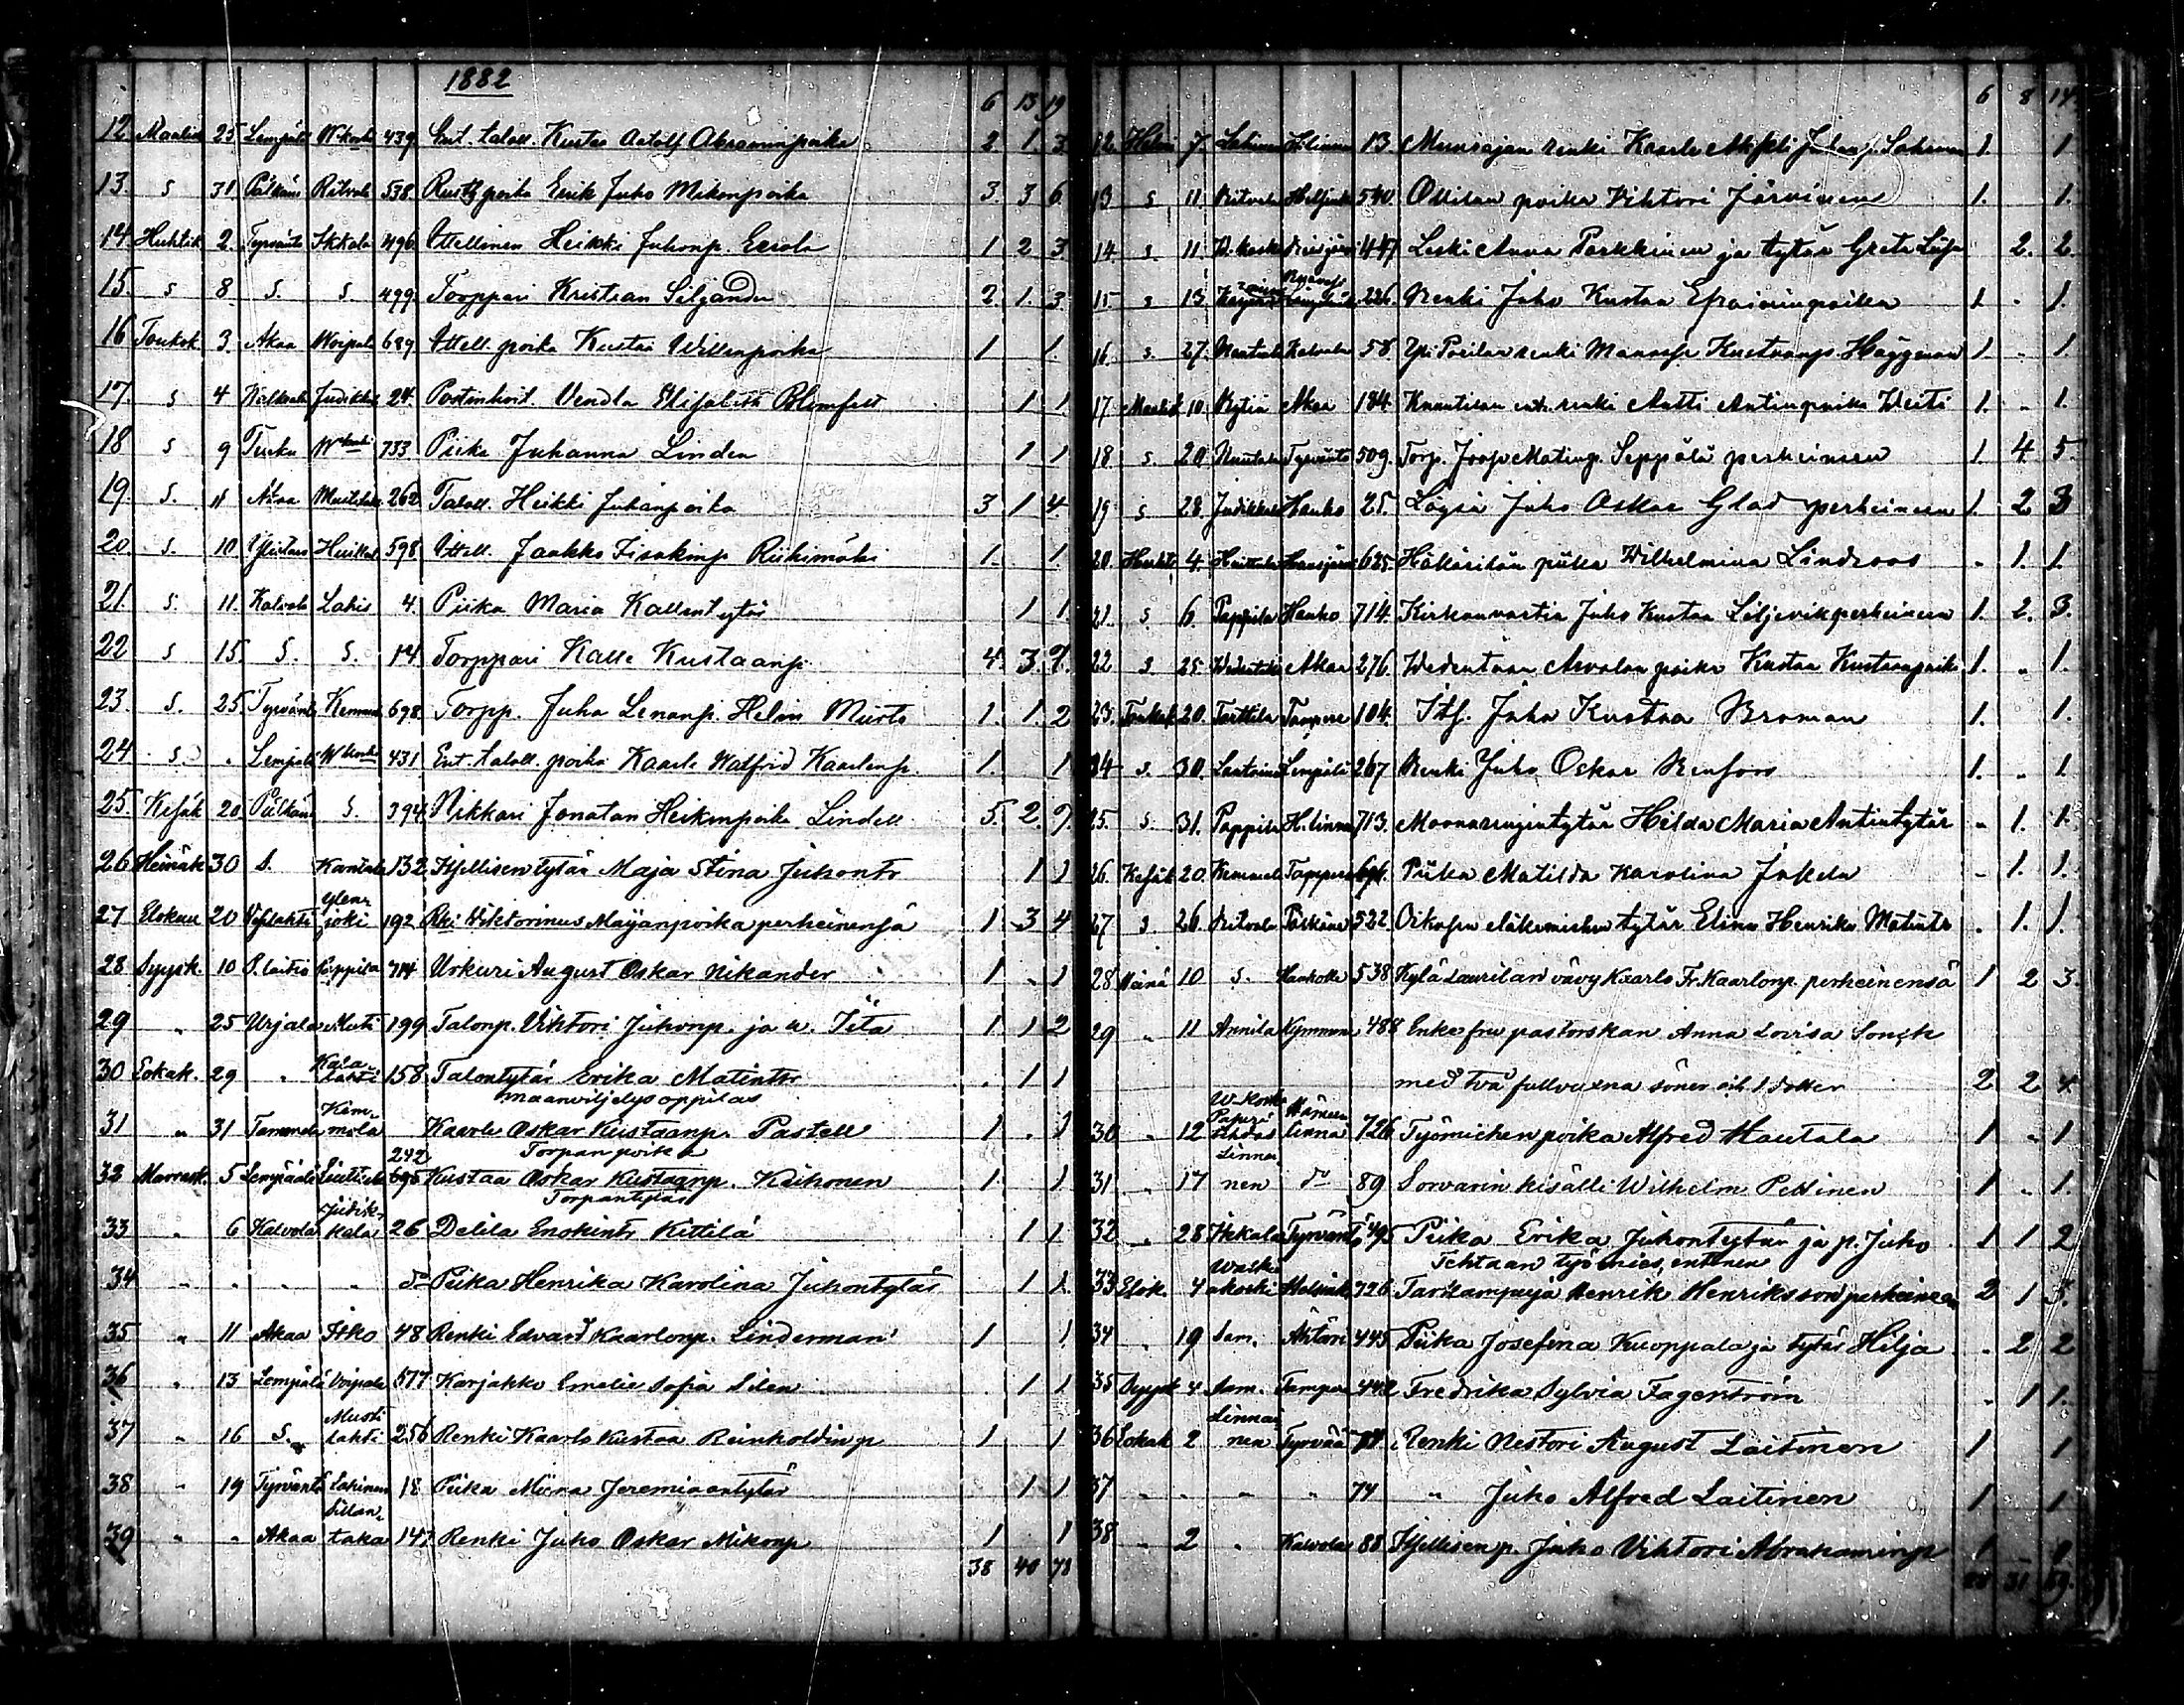 1882
6 13 19
12 Maalisk 25 Lempäälä W koski 439 Ent. taloll. Kustaa Adolf Abraminpoika 2. 1. 3
13. s 31 Pälkäne Ritvala 538. Rusth. poika Erik Juho Mikonpoika 3. 3 6.
14. Huhtik 2. Tyrväntö Ikkala 496. Ittellinen Heikki Juhonp. Eerola 1 2 3.
15. s 8. s. s. 499. Torppari Kristian Siljander 2. 1. 3.
16 Toukok 3. Akaa Woipala 689 Ittell. poika Kustaa Willenpoika 1 1.
17. s 4 Kalvola Judikkal 24. Postinhoit. Vendla Elisabeth Blomfelt 1 1
18 s 9 Turku W koski 733. Piika Juhanna Linden 1 1
19. s. 11 Akaa Mustilahti 262 Taloll. Heikki Juhanpoika 3 1 4
20. s. 10 Ylistaro Huittul 598 Ittell. Jaakko Iisakinp. Riihimäki 1. 1.
21. s. 11. Kalvola Lahis 4. Piika Maria Kallentytär 1 1.
22 s 15. s. s. 14 Torppari Kalle Kustaanp. 4. 3. 7.
23. s. 25. Tyrväntö Kemmol 698. Torpp. Juha Lenanp. Helmi Murto 1. 1. 2
24 s. „ Lempäälä W koski 431 Ent. taloll. poika Kaarle Walfrid Kaarlenp. 1. 1
25. Kesäk 20. Pälkäne s. 394. Nikkari Jonatan Heikinpoika Lindell 5. 2. 7.
26 Heinäk 30 s. Kantala 132 Itsellisen tytär Maja Stina Juhontr 1 1
27 Elokuu 20 Vesilahti Ylenjoki 192 Rki Wiktorinus Maijanpoika perheinensä 1 3 4
28 Syysk. 10 P. laitio Pappila 714 Urkuri August Oskar Nikander 1 „ 1
29 „ 25 Urjala Muti 199 Talonp. Viktori Juhonp. ja v. Iita 1. 1 2
30 Lokak. 29 „ Kalalahti 158 Talontytär Erika Matintr „ 1 1
maanviljelysoppilas
31 „ 31 Tammela Kemmola Kaarle Oskar Kustaanp. Pastell 1 „ 1
242 Torpan poika
32 Marrask. 5 Lempäälä 695 Kustaa Oskar Kustaanp. Kaihonen 1. 1
Torpantytär
33 „ 6 Kalvola Judikkala 26 Delila Enokintr Kittilä 1 1
34 „ „ „ „ do Piika Henrika Karolina Juhontytär 1 1.
35 „ 11 Akaa Itko 48 Renki Edvard Kaarlonp. Linderman 1 1
36 „ 13 Lempäälä Voipala 577 Karjakko Emelie Sofia Silen 1 1
37 „ 16 s. Mustilahti 256 Renki Kaarlo Kustaa Reinholdinp 1 1
38 „ 19 Tyrväntö Lahinen 18 Piika Miina Jeremiaantytär 1 1
39 „ „ Akaa Sillantaka 147 Renki Juho Oskar Mikonp 1 1
38 40 78
6 8 14.
12. Helmi 7. Lahinen H.linna 13. Muurajan renki Kaarle Juhanp. Lahinen 1. 1
13 s 11. Ritvala 540. Ollilan poika Viktori Järvinen 1. 1.
14. s. 11. W. koski 447 Leski Anna Parkkinen ja tytär Greta Liisa 2. 2.
15 s 13. 226. Renki Juho Kustaa Efraiminpoika 1 „ 1.
16. s. 27. Uittamo Kalvola 58 Yli Porilan renki Manasse Kustaanp. Häggman 1. „ 1.
17 Maalisk 10. Kyliä Akaa 184. Knuutilan ent. renki Antti Antinpoika Weiti 1. „ 1.
18 s. 20. Uuttala Tyrväntö 509. Torp. Joop Matinp. Seppälä perheineen 1. 4. 5.
19 s 28. Judikkala Hauho 25. Löysä Juho Oskar Glad perheineen 1. 2 3
20. Huhtik 4. Huittula Hausjärvi 625. Hällärilän piika Wilhelmina Lindroos „ 1. 1.
21. s. 6. Pappila Hauho 714. Kirkonvartia Juho Kustaa Liljevik perheineen 1. 2. 3.
22 s. 25. Akaa 276. Wedentaan Arvolan poika Kustaa Kustaanpoika 1. „ 1.
23. Toukok 20. Tarttila Tampere 104. Its. Juho Kustaa Broman 1. 1.
24 s. 30. Lempäälä 267 Renki Juho Oskar Renfors 1. „ 1.
25. s. 31. Pappila H.linna 713. Maanarenjintytär Hilda Maria Antintytär „ 1. 1.
26. Kesäk 20. Kemmola Tampere 691. Piika Matilda Karolina Jakela „ 1. 1.
27 s 26. Ritvala Pälkäne 522 Oikasen eläkemiehen tytär Elina Henrika Matintr „ 1. 1.
28 Heinä 10 s. 538 Kylä Laurilan vävy Kaarlo Fr. Kaarlonp. perheinensä 1 2 3.
29 „ 11 Annila Kymmene 488 Enkefru pastorskan Anna Lovisa Sonck
med två fullvuxna söner och 1 dotter 2 2 4.
30 „ 12 W-koski Paperi Hämeenlinna 726 Työmiehen poika Alfred Hautala 1 „ 1
31 „ 17 Linnanen do 89 Sorvarin kisälli Wilhelm Peltinen 1 „ 1.
32 „ 28 Ikkala Tyrväntö 495 Piika Erika Juhontytär ja p. Juho 1 1 2
Tehtaan työmies, entinen
33 Elok. 4 Walkiakoski Helsinki 726 Tarkampuja Henrik Henriksson perheineen 2 1 3.
34 „ 19 Sam. Ähtäri 445 Piika Josefina Kuoppala ja tytär Hilja „ 2 2
35 Syysk 4 Sam. Tampere 442 Fredrika Sylvia Fagerström „ 1 1.
36 Lokak 2 Linnanen Tyrvää 74 Renki Nestori August Laitinen 1 1
37 „ „ „ „ 74 „ Juho Alfred Laitinen 1 1
38 „ 2 „ Kalvola 88 Itsellisen p. Juho Viktori Abrahaminp 1 „ 1
31